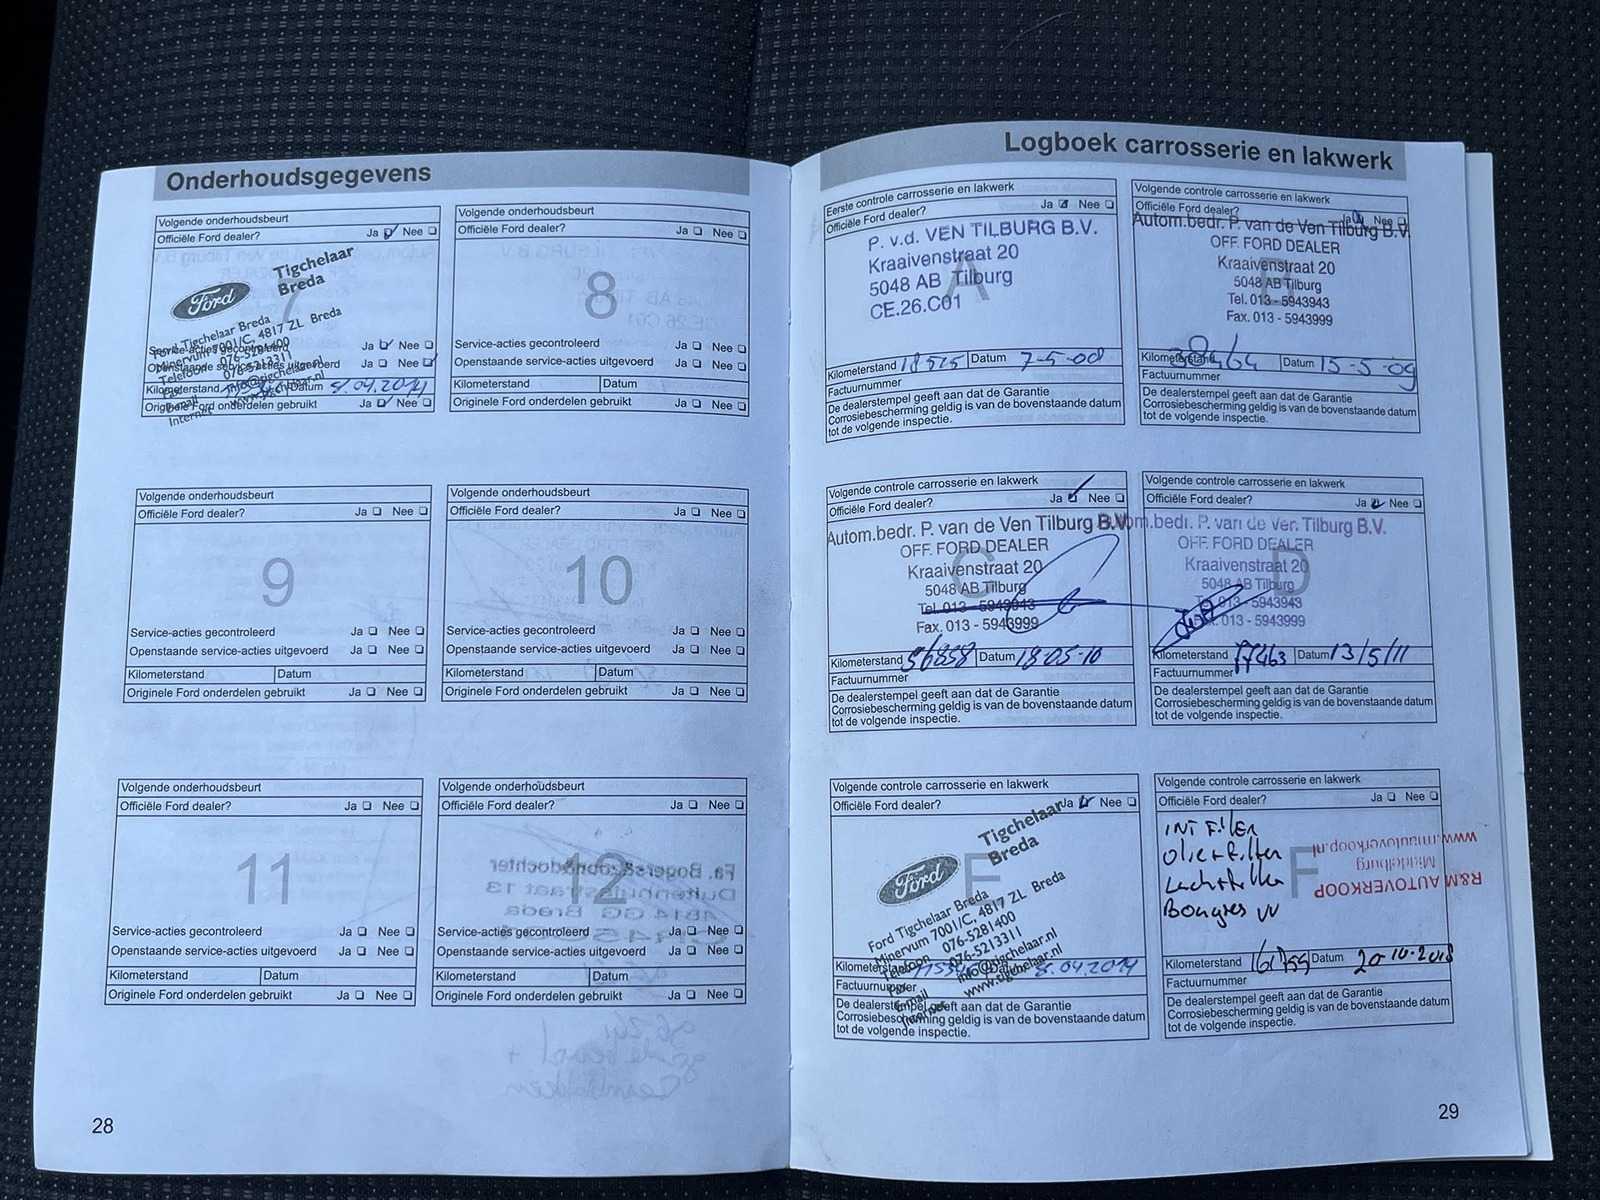 Onderhoudsgegevens
Volgende onderhoudsbeurt
Officiële Ford dealer? Ja Nee
7
Tigchelaar
Breda
Ford
Ford Tigchelaar Breda
Minervum 7001/C, 4817 ZL Breda
Telefoon 076-5281400
076-5213311
Service-acties gecontroleerd Ja Nee
Openstaande service-acties uitgevoerd Ja Nee
Kilometerstand Datum 8.04.2014
Originele Ford onderdelen gebruikt Ja Nee
Volgende onderhoudsbeurt
Officiële Ford dealer? Ja Nee
8
Service-acties gecontroleerd Ja Nee
Openstaande service-acties uitgevoerd Ja Nee
Kilometerstand Datum
Originele Ford onderdelen gebruikt Ja Nee
Volgende onderhoudsbeurt
Officiële Ford dealer? Ja Nee
9
Service-acties gecontroleerd Ja Nee
Openstaande service-acties uitgevoerd Ja Nee
Kilometerstand Datum
Originele Ford onderdelen gebruikt Ja Nee
Volgende onderhoudsbeurt
Officiële Ford dealer? Ja Nee
10
Service-acties gecontroleerd Ja Nee
Openstaande service-acties uitgevoerd Ja Nee
Kilometerstand Datum
Originele Ford onderdelen gebruikt Ja Nee
Volgende onderhoudsbeurt
Officiële Ford dealer? Ja Nee
11
Service-acties gecontroleerd Ja Nee
Openstaande service-acties uitgevoerd Ja Nee
Kilometerstand Datum
Originele Ford onderdelen gebruikt Ja Nee
Volgende onderhoudsbeurt
Officiële Ford dealer? Ja Nee
12
Service-acties gecontroleerd Ja Nee
Openstaande service-acties uitgevoerd Ja Nee
Kilometerstand Datum
Originele Ford onderdelen gebruikt Ja Nee
28
Logboek carrosserie en lakwerk
Eerste controle carrosserie en lakwerk
Officiële Ford dealer? Ja Nee
A
P. v.d. VEN TILBURG B.V.
Kraaivenstraat 20
5048 AB Tilburg
CE.26.C01
Kilometerstand 18515 Datum 7-5-08
Factuurnummer
De dealerstempel geeft aan dat de Garantie
Corrosiebescherming geldig is van de bovenstaande datum
tot de volgende inspectie.
Volgende controle carrosserie en lakwerk
Officiële Ford dealer? Ja Nee
B
Autom.bedr. P. van de Ven Tilburg B.V.
OFF FORD DEALER
Kraaivenstraat 20
5048 AB Tilburg
Tel. 013 - 5943943
Fax. 013 - 5943999
Kilometerstand Datum 15-5-09
Factuurnummer
De dealerstempel geeft aan dat de Garantie
Corrosiebescherming geldig is van de bovenstaande datum
tot de volgende inspectie.
Volgende controle carrosserie en lakwerk
Officiële Ford dealer? Ja Nee
C
Autom.bedr. P. van de Ven Tilburg B.V.
OFF. FORD DEALER
Kraaivenstraat 20
5048 AB Tilburg
Tel. 013 - 5943943
Fax. 013 - 5943999
Kilometerstand 56858 Datum 18-05-10
Factuurnummer
De dealerstempel geeft aan dat de Garantie
Corrosiebescherming geldig is van de bovenstaande datum
tot de volgende inspectie.
Volgende controle carrosserie en lakwerk
Officiële Ford dealer? Ja Nee
D
P. van de Ven Tilburg B.V.
OFF. FORD DEALER
Kraaivenstraat 20
5048 AB Tilburg
Tel. 013 - 5943943
Fax. 013 - 5943999
Kilometerstand 77463 Datum 13/5/11
Factuurnummer
De dealerstempel geeft aan dat de Garantie
Corrosiebescherming geldig is van de bovenstaande datum
tot de volgende inspectie.
Volgende controle carrosserie en lakwerk
Officiële Ford dealer? Ja Nee
E
Tigchelaar
Breda
Ford
Ford Tigchelaar Breda
Minervum 7001/C, 4817 ZL Breda
Telefoon 076-5281400
Fax 076-5213311
E-mail info@tigchelaar.nl
Internet www.tigchelaar.nl
Kilometerstand Datum 8.04.2014
Factuurnummer
De dealerstempel geeft aan dat de Garantie
Corrosiebescherming geldig is van de bovenstaande datum
tot de volgende inspectie.
Volgende controle carrosserie en lakwerk
Officiële Ford dealer? Ja Nee
F
INT FilTER
Olie+filter
Luchtfilter
Bougies VV
R&M AUTOVERKOOP
Middelburg
www.rmautoverkoop.nl
Kilometerstand Datum 20-10-2018
Factuurnummer
De dealerstempel geeft aan dat de Garantie
Corrosiebescherming geldig is van de bovenstaande datum
tot de volgende inspectie.
29